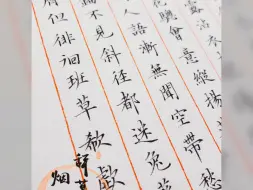 露沾
驄會意縱揚
人語漸無聞空帶愁
不見斜徑都迷兔
似徘徊班草欷歔
烟